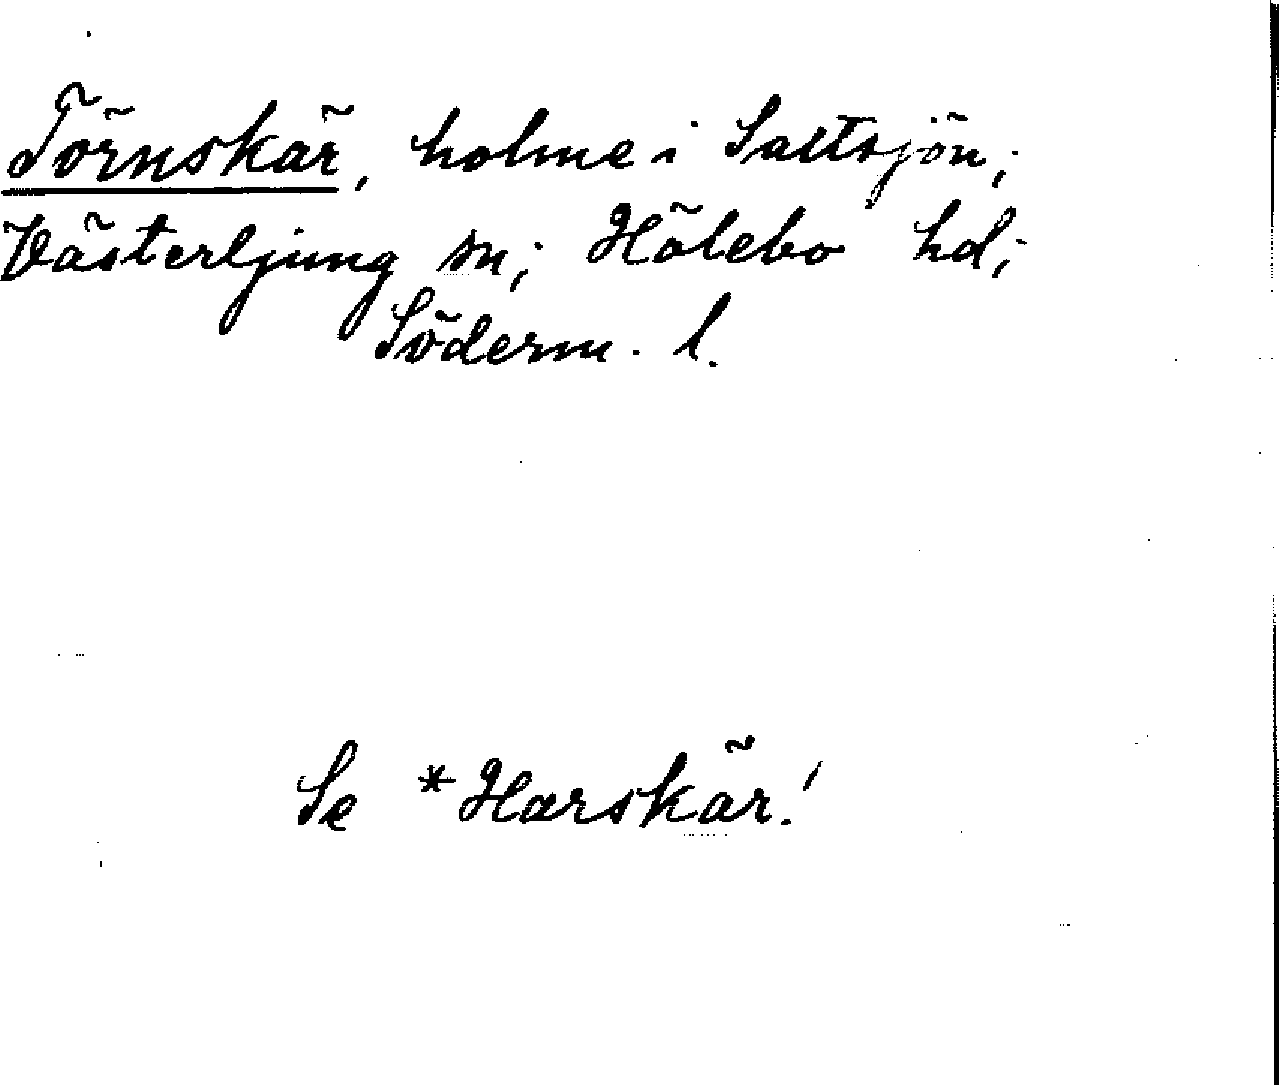 Törnskär, holme i Saltsjön;
Västerljung sn; Hölebo hd;
Söderm. l.
Se *Harskär!